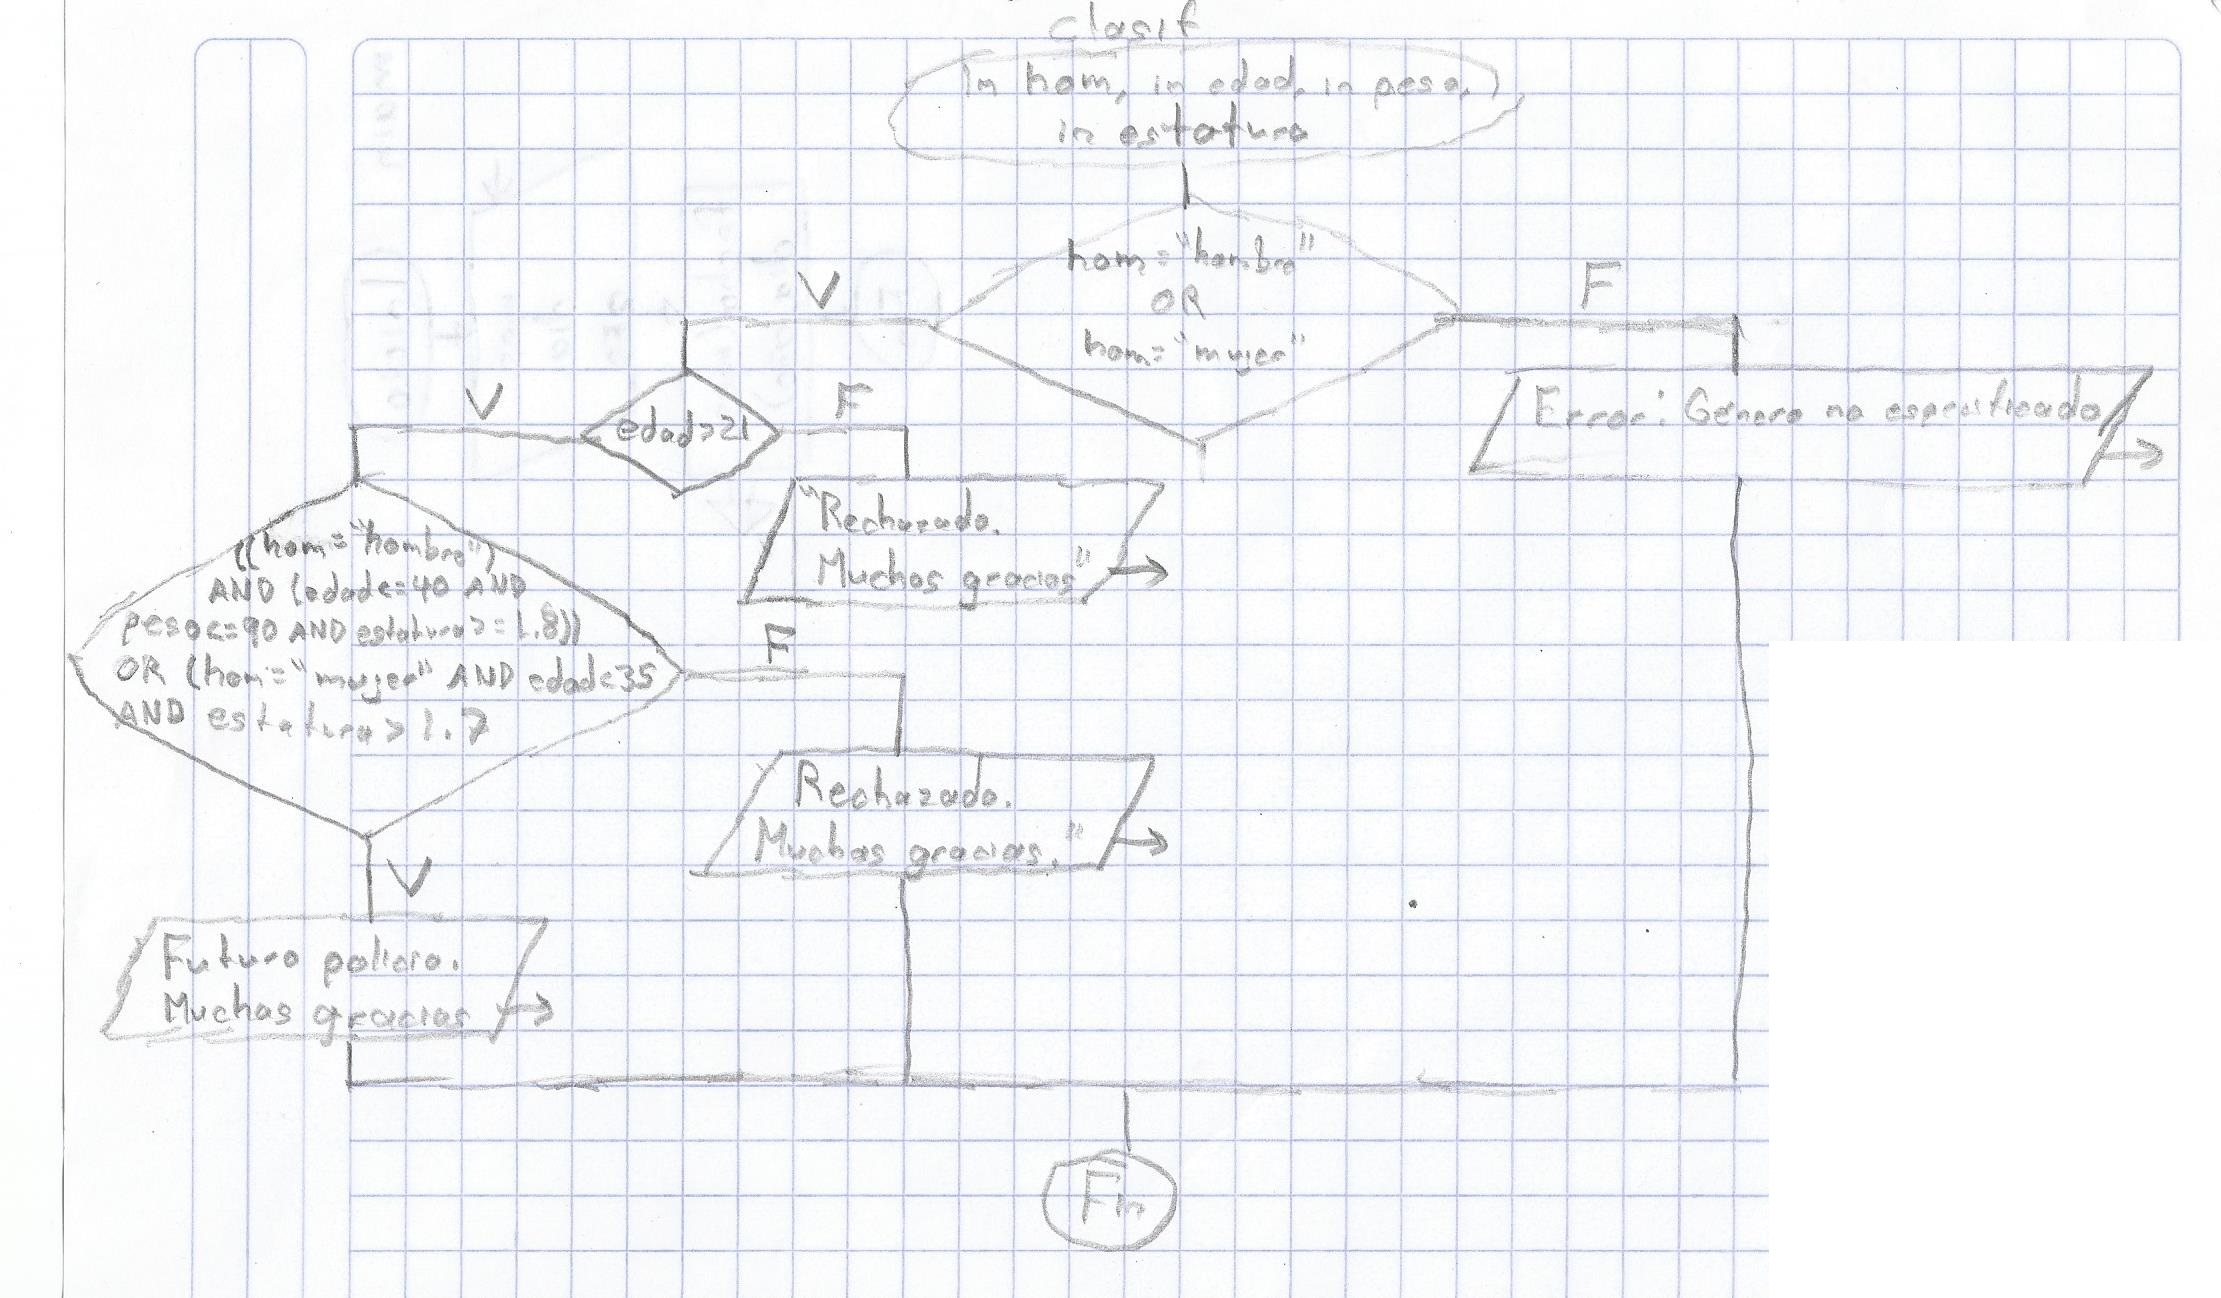 clasif
in hom, in edad, in peso,
in estatura
hom="hombre"
OR
hom="mujer"
V
F
Error: Género no especificado
V
edad>21
F
"Rechazado.
Muchas gracias"
((hom="hombre")
AND (edad<=40 AND
peso<=90 AND estatura>=1.8))
OR (hom="mujer" AND edad<35
AND estatura>1.7
F
Rechazado.
Muchas gracias."
V
Futuro policia.
Muchas gracias
Fin